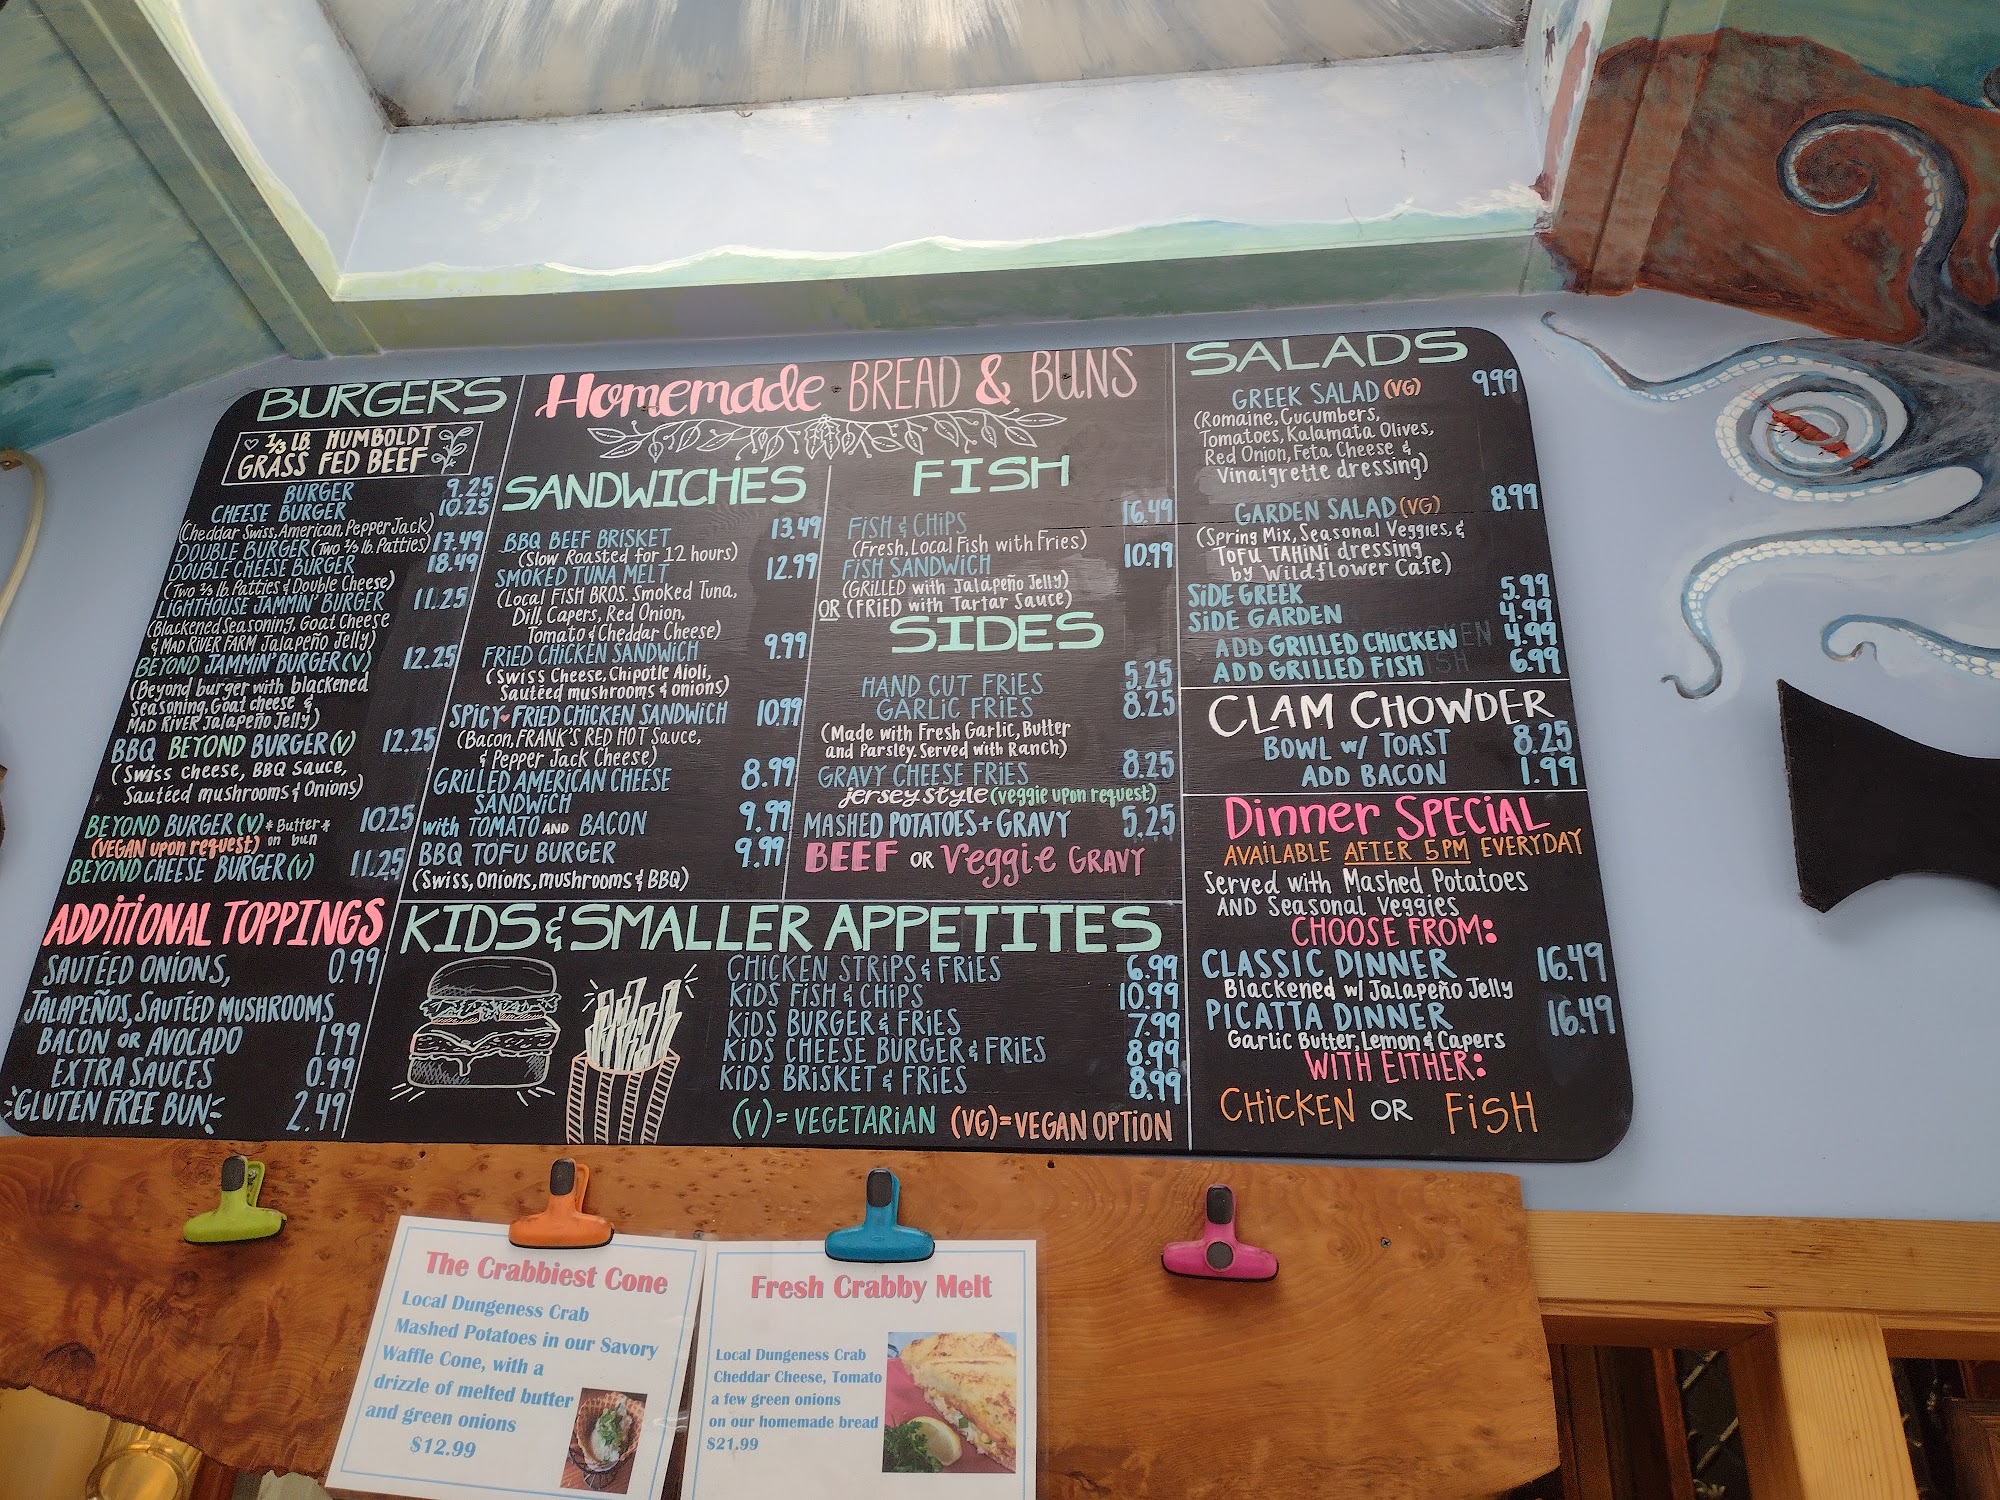 BURGERS
♡ 1/3 LB. HUMBOLDT
GRASS FED BEEF
BURGER 9.25
CHEESE BURGER 10.25
(Cheddar Swiss, American, Pepper Jack)
DOUBLE BURGER (Two 1/3 lb. Patties) 17.49
DOUBLE CHEESE BURGER 18.49
(Two 1/3 lb Patties & Double Cheese)
LIGHTHOUSE JAMMIN' BURGER 11.25
(Blackened Seasoning, Goat Cheese
& MAD RIVER FARM Jalapeño Jelly)
BEYOND JAMMIN' BURGER (V) 12.25
(Beyond burger with blackened
Seasoning, Goat cheese &
MAD RIVER Jalapeño Jelly)
BBQ BEYOND BURGER (V) 12.25
(Swiss cheese, BBQ Sauce,
Sautéed mushrooms & Onions)
BEYOND BURGER (V) *Butter* on bun 10.25
(VEGAN upon request)
BEYOND CHEESE BURGER (V) 11.25
ADDITIONAL TOPPINGS
SAUTÉED ONIONS, 0.99
JALAPEÑOS, SAUTÉED MUSHROOMS
BACON OR AVOCADO 1.99
EXTRA SAUCES 0.99
GLUTEN FREE BUN 2.49
Homemade BREAD & BUNS
SANDWICHES
BBQ BEEF BRISKET 13.49
(Slow Roasted for 12 hours)
SMOKED TUNA MELT 12.99
(Local FISH BROS. Smoked Tuna,
Dill, Capers, Red Onion,
Tomato & Cheddar Cheese)
FRIED CHICKEN SANDWICH 9.99
(Swiss Cheese, Chipotle Aioli,
Sautéed mushrooms & onions)
SPICY ♥ FRIED CHICKEN SANDWICH 10.99
(Bacon, FRANK'S RED HOT Sauce,
& Pepper Jack Cheese)
GRILLED AMERICAN CHEESE 8.99
SANDWICH
with TOMATO AND BACON 9.99
BBQ TOFU BURGER 9.99
(Swiss, Onions, mushrooms & BBQ)
FISH
FISH & CHIPS 16.49
(Fresh, Local Fish with Fries)
FISH SANDWICH 10.99
(GRILLED with Jalapeño Jelly)
OR (FRIED with Tartar Sauce)
SIDES
HAND CUT FRIES 5.25
GARLIC FRIES 8.25
(Made with Fresh Garlic, Butter
and Parsley. Served with Ranch)
GRAVY CHEESE FRIES 8.25
jersey style (veggie upon request)
MASHED POTATOES + GRAVY 5.25
BEEF OR Veggie GRAVY
KIDS & SMALLER APPETITES
CHICKEN STRIPS & FRIES 6.99
KIDS FISH & CHIPS 10.99
KIDS BURGER & FRIES 7.99
KIDS CHEESE BURGER & FRIES 8.99
KIDS BRISKET & FRIES 8.99
(V) = VEGETARIAN (VG) = VEGAN OPTION
SALADS
GREEK SALAD (VG) 9.99
(Romaine, Cucumbers,
Tomatoes, Kalamata Olives,
Red Onion, Feta Cheese &
Vinaigrette dressing)
GARDEN SALAD (VG) 8.99
(Spring Mix, Seasonal Veggies, &
TOFU TAHINI dressing
by Wildflower Cafe)
SIDE GREEK 5.99
SIDE GARDEN 4.99
ADD GRILLED CHICKEN 4.99
ADD GRILLED FISH 6.99
CLAM CHOWDER
BOWL w/ TOAST 8.25
ADD BACON 1.99
Dinner SPECIAL
AVAILABLE AFTER 5PM EVERYDAY
Served with Mashed Potatoes
AND Seasonal Veggies
CHOOSE FROM:
CLASSIC DINNER 16.49
Blackened w/ Jalapeño Jelly
PICATTA DINNER 16.49
Garlic Butter, Lemon & Capers
WITH EITHER:
CHICKEN OR FISH
The Crabbiest Cone
Local Dungeness Crab
Mashed Potatoes in our Savory
Waffle Cone, with a
drizzle of melted butter
and green onions
$12.99
Fresh Crabby Melt
Local Dungeness Crab
Cheddar Cheese, Tomato
a few green onions
on our homemade bread
$21.99